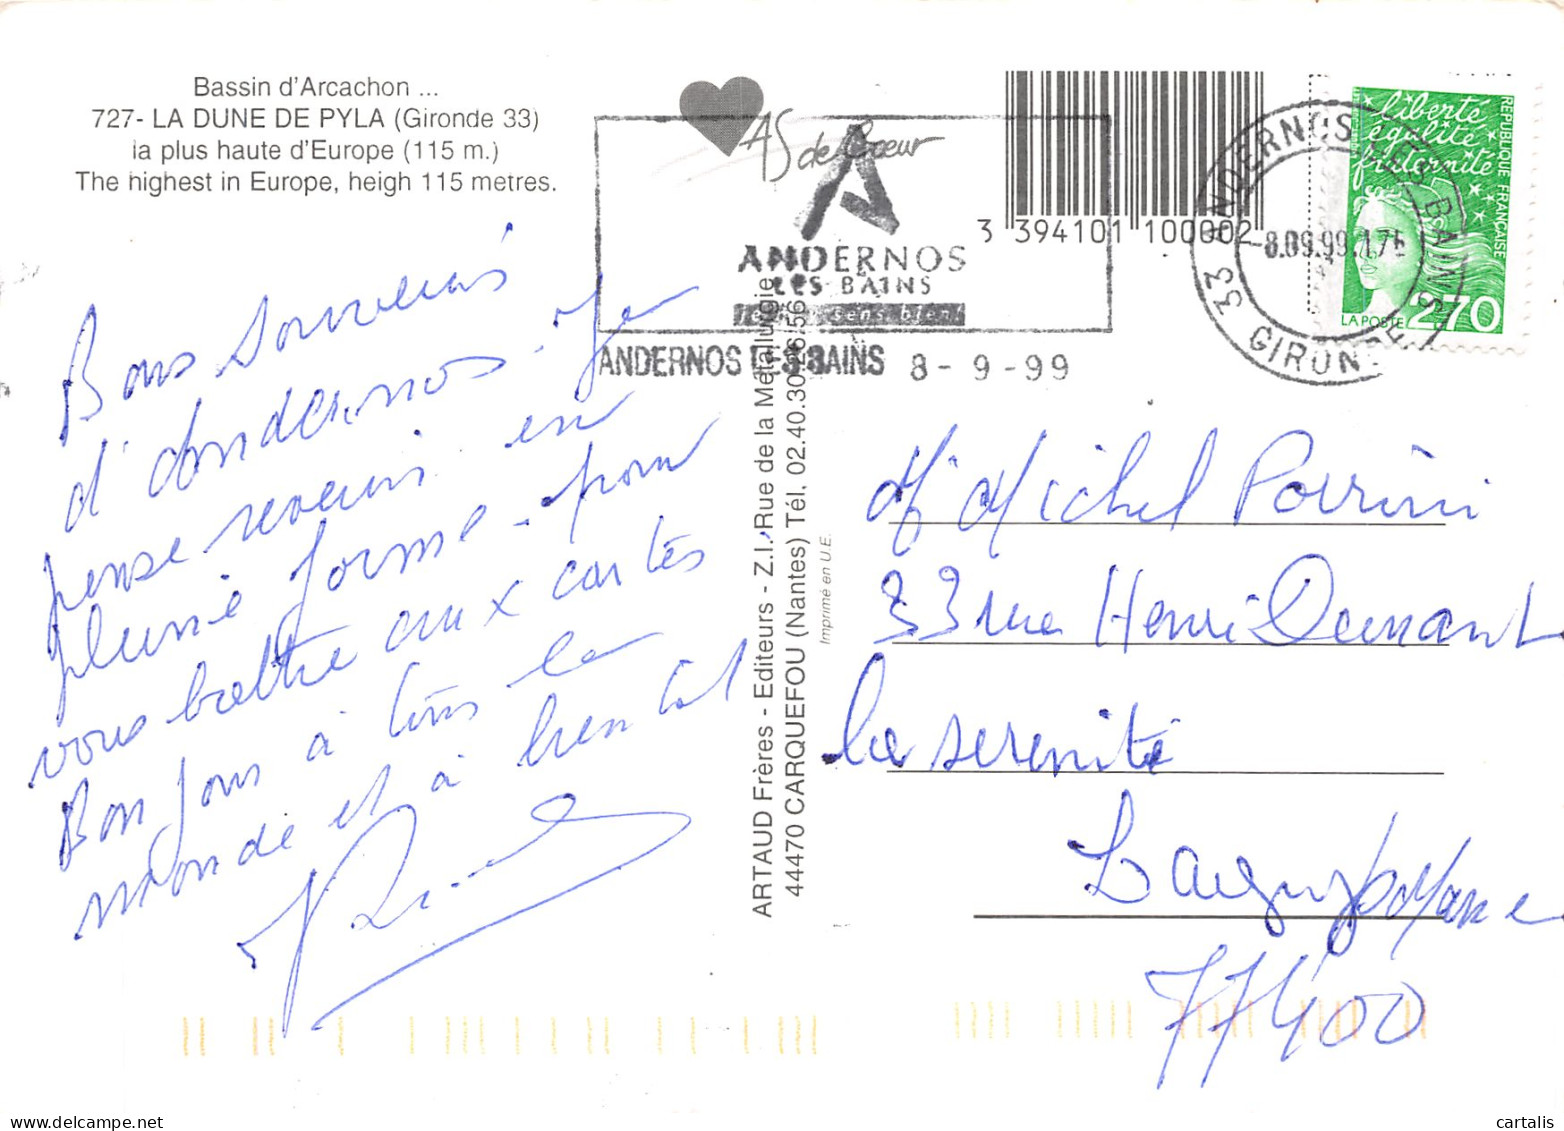 Bassin d'Arcachon ...
727- LA DUNE DE PYLA (Gironde 33)
la plus haute d'Europe (115 m.)
The highest in Europe, heigh 115 metres.
AS de Coeur
ANDERNOS
LES BAINS
ANDERNOS LES BAINS 8-9-99
3 394101 100002
33 ANDERNOS LES BAINS
-8.09.99.17
GIRONDE
liberté
égalité
fraternité
RÉPUBLIQUE FRANÇAISE
LA POSTE 2,70
Bons souvenirs
d'Andernos. Je
pense revenir en
pleine forme. pour
vous battre aux cartes
Bonjour à tous le
monde et à bientot
ARTAUD Frères - Editeurs - Z.I. Rue de la Métalurgie
44470 CARQUEFOU (Nantes) Tél. 02.40.30.26.56
Imprimé en U.E.
Mr Michel Porrini
33 rue Henri Dunant
la serenité
Lagny s/Marne
77400
cartalis